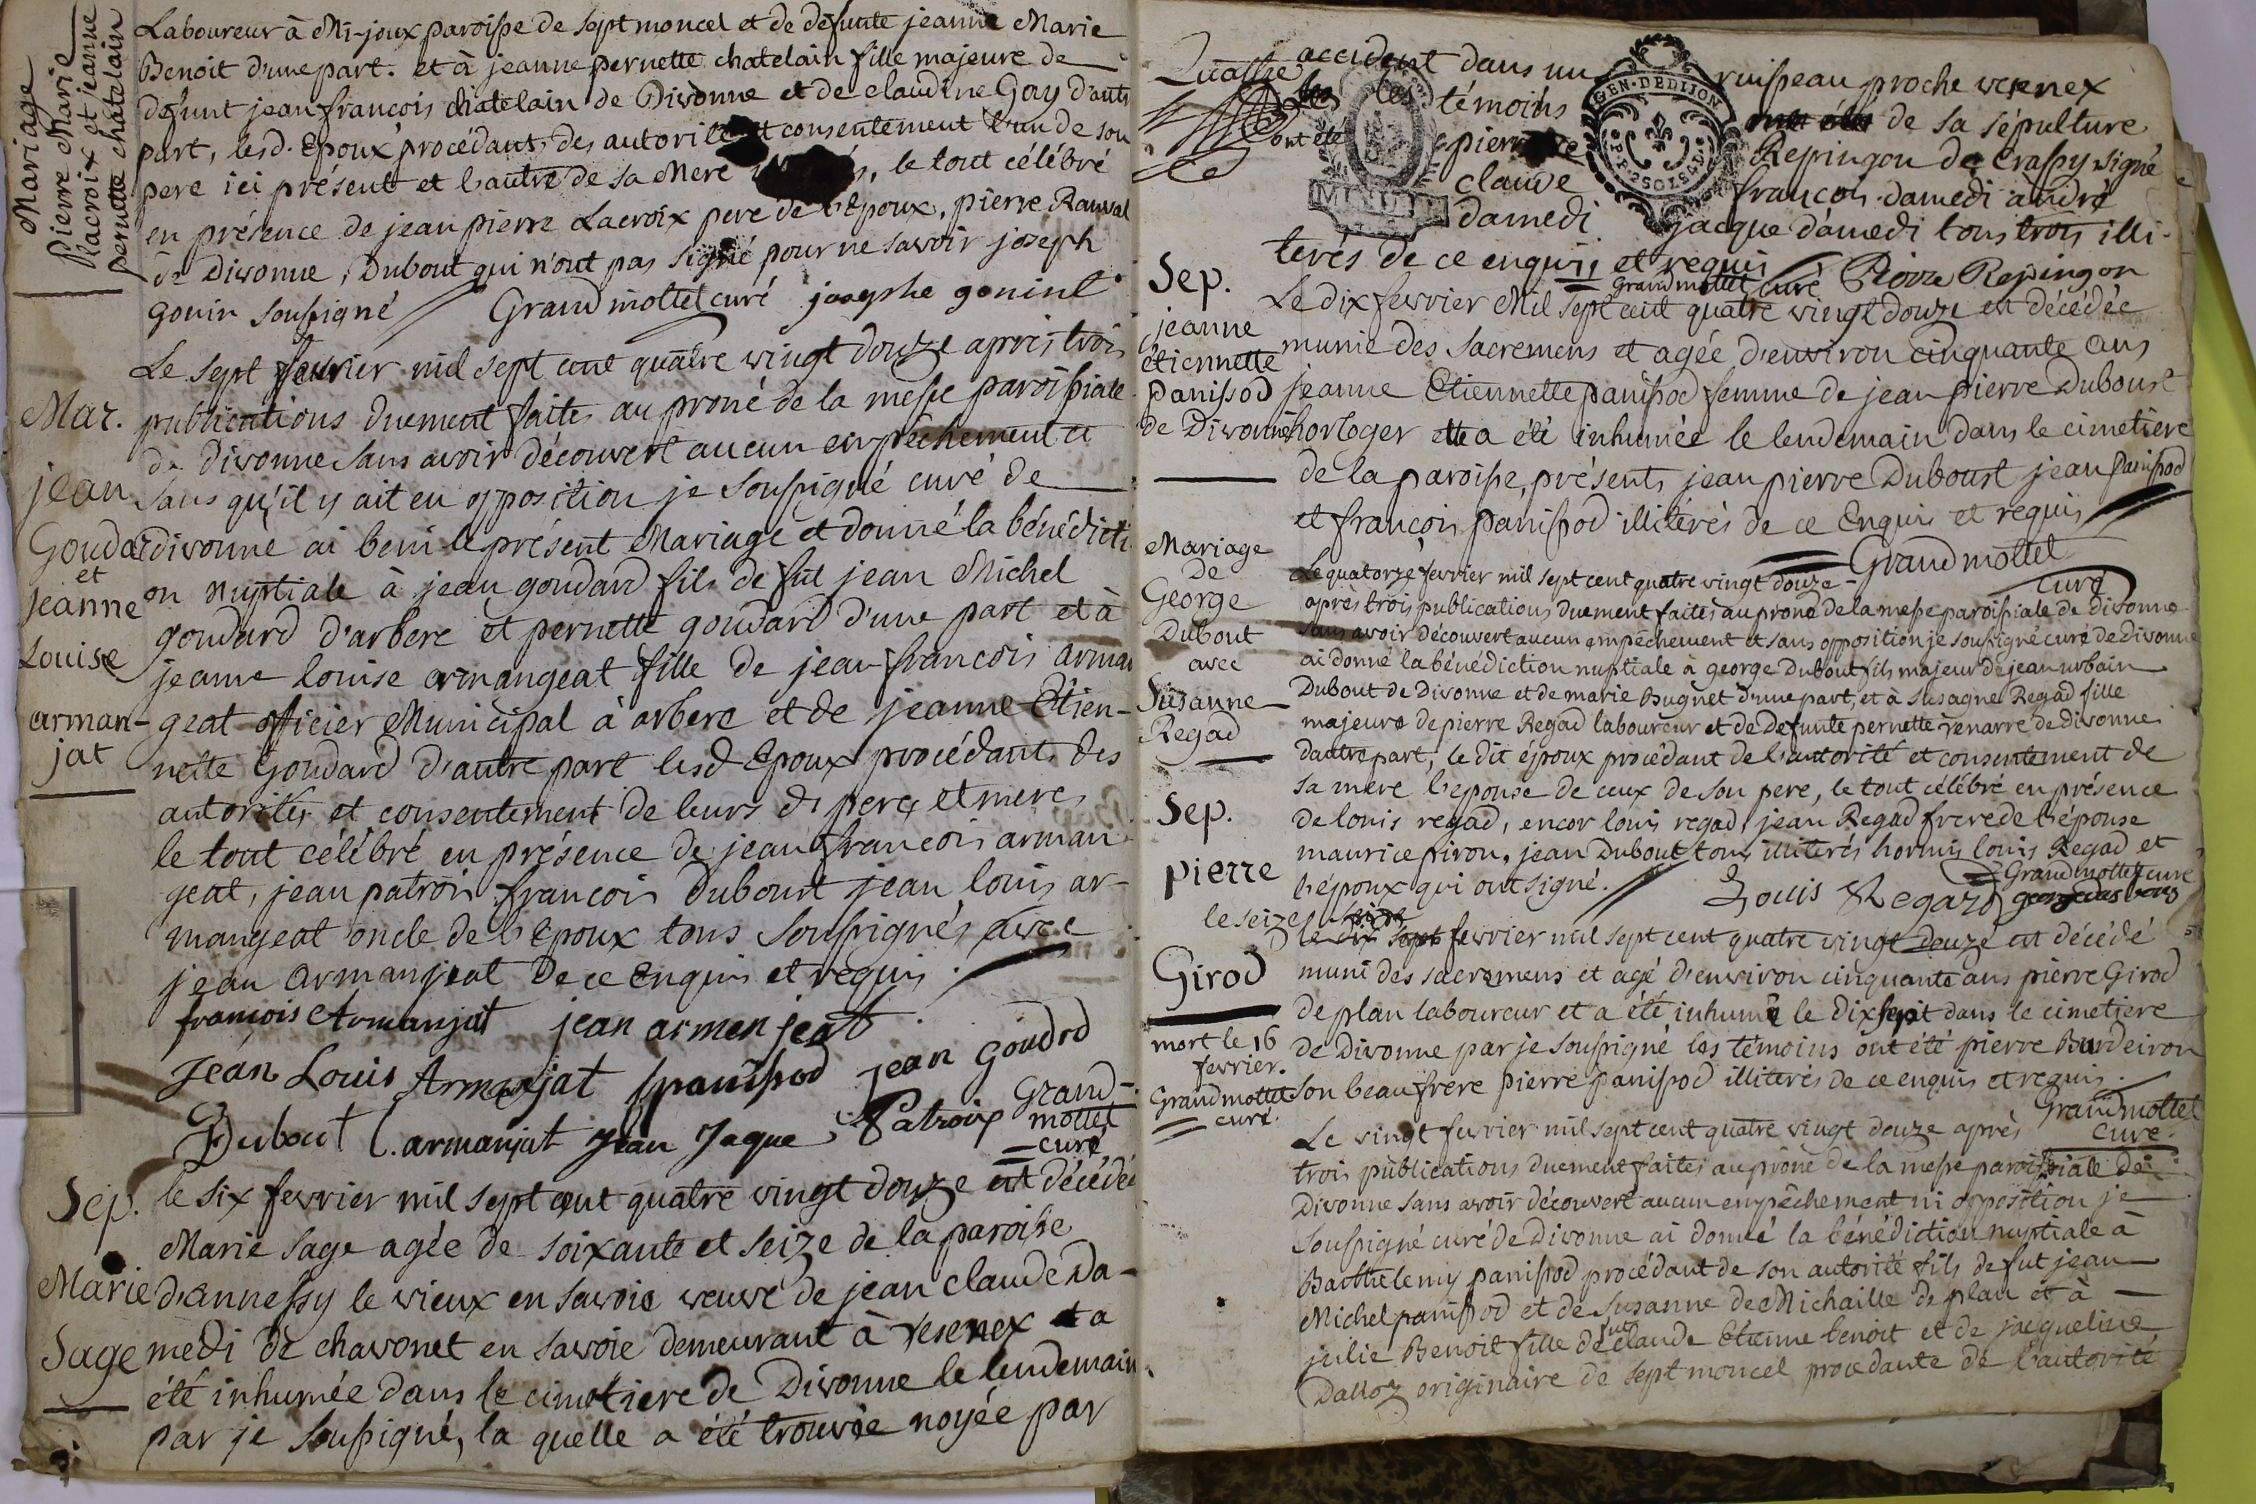 Mariage
Pierre Marie
Lacroix et jeanne
pernette chatelain
Laboureur à Mi-joux paroisse de sept moncel et de defunte jeanne Marie
Benoit d'une part. et à jeanne pernette chatelain fille majeure de
defunt jean françois chatelain de Divonne et de claudine Goy d'autr
part, lesd. Epoux procédants des autorité et consentement l'un de son
pere ici présent et l'autre de sa Mere, le tout célébré
en présence de jean pierre Lacroix pere de l'Epoux, pierre Ranval
de Divonne, Dubout qui n'ont pas signé pour ne savoir joseph
gonin soussigné Grandmottet curé josephe gonint
Mar.
jean
Goudar
et
jeanne
Louise
arman-
jat
Le sept fevrier mil sept cent quatre vingt douze après trois
publications duement faites au prone de la messe paroissiale
de divonne sans avoir découvert aucun empechement et
sans qu'il y ait eu opposition je soussigné curé de
divonne ai beni le présent Mariage et donné la bénédicti
on nuptiale à jean goudard fils de fut jean Michel
goudard d'arbere et pernette goudard d'une part et à
jeanne louise armangeat fille de jean françois arman
geat officier Municipal à arbere et de jeanne Etien-
nette Goudard d'autre part lesd Epoux procédants des
autorités et consentement de leurs ds peres et meres
le tout célébré en présence de jean françois arman
geat, jean patroix françois Dubout jean louis ar-
mangeat oncle de l'Epoux tous soussignés avec
jean armanjeat De ce Enquis et requis.
francois Armanjat jean armenjeat
Jean Louis Armanjat panissod jean goudrd
Dubout l. armanjat Jean Jaque Patroix Grand-
mottet
curé
Sep.
Marie
Sage
le six fevrier mil sept cent quatre vingt douze est décédée
Marie sage agée de soixante et seize de la paroisse
d'annessy le vieux en savoie veuve de jean claude Da-
medi de chavonet en savoie demeurant à vesenex et a
été inhumée dans le cimetiere de Divonne le lendemain
par je soussigné, la quelle a été trouvée noyée par
accident dans un ruisseau proche vesenex
les témoins de sa sépulture
ont été pierre Repingon de Crassy signé
claude françois damedi andré
damedi jacque damedi tous trois illi-
terés de ce enquis et requis
Grandmottet curé Pierre Repingon
GEN. DE DIJON
Sep.
jeanne
étiennette
panissod
de Divonne
Le dix fevrier Mil sept cent quatre vingt douze est décédée
munie des sacremens et agée d'environ cinquante ans
jeanne Etiennette panissod femme de jean pierre Dubout
horloger elle a été inhumée le lendemain dans le cimetiere
de la paroisse, présents jean pierre Dubout jean panissod
et françois panissod illiterés de ce Enquis et requis
Grandmottet
curé
Mariage
de
George
Dubout
avec
Susanne
Regad
Le quatorze fevrier mil sept cent quatre vingt douze
après trois publications duement faites au prone de la messe paroissiale de divonne
sans avoir découvert aucun empechement et sans opposition je soussigné curé de Divonne
ai donné la bénédiction nuptiale à george Dubout fils majeur de jean urbain
Dubout de Divonne et de marie Bugnet d'une part, et à susagne Regad fille
majeure de pierre Regad laboureur et de Defunte pernette venarre de divonne
d'autre part, le dit époux procédant de l'autorité et consentement de
sa mere l'epouse de ceux de son pere, le tout célébré en présence
de louis regad, encor louis regad, jean Regad frere de l'épouse
maurice pirou, jean Dubout tous illiterés hormis louis Regad et
l'époux qui ont signé. Louis Regard Grandmottet curé
Sep.
pierre
Girod
mort le 16
fevrier.
Grandmottet
curé.
le seize
le dix sept fevrier mil sept cent quatre vingt douze est décédé
muni des sacremens et agé d'environ cinquante ans pierre Girod
de plan laboureur et a été inhumé le dix sept dans le cimetiere
de Divonne par je soussigné les témoins ont été pierre Burdeiron
son beaufrere pierre panissod illiterés de ce enquis et requis.
Grandmottet
curé.
Le vingt fevrier mil sept cent quatre vingt douze après
trois publications duement faites au prone de la messe paroissiale de
Divonne sans avoir découvert aucun empêchement ni opposition je
soussigné curé de Divonne ai donné la bénédiction nuptiale à
Barthelemy panissod procédant de son autorité fils de fut jean
Michel panissod et de Susanne de Michaille de plan et à
julie Benoit fille de fut claude Etienne benoit et de jacqueline
Dalloz originaire de sept moncel procedante de l'autorité